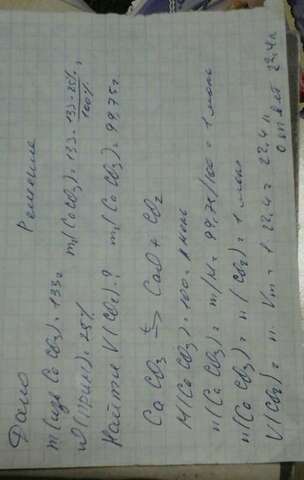 Дано
Решение
m(изв CaCO3)=133г m(CaCO3)=133-133·25%/100%
ω(прим)=25%
Найти V(CO2)-? m(CaCO3)=99,75г
CaCO3 ⇆ CaO + CO2
M(CaCO3)=100г моль
n(CaCO3)= m/M= 99,75/100 = 1 моль
n(CaCO3)= n(CO2)= 1 моль
V(CO2)= n· Vm = 1· 22,4 = 22,4 л
Ответ 22,4 л